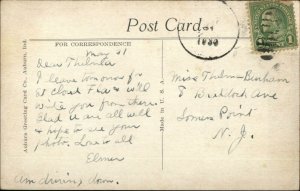 Post Card
FOR CORRESPONDENCE
May 31
Dear Thelma
I leave tomorrow for
St Cloud Fla & will
write you from there.
Glad u are all well
& hope to see your
photo. Love to all
Elmer
Am driving down.
Miss Thelma Burham
8 Braddock Ave
Somers Point
N. J.
Auburn Greeting Card Co. Auburn, Ind.
Made in U. S. A.